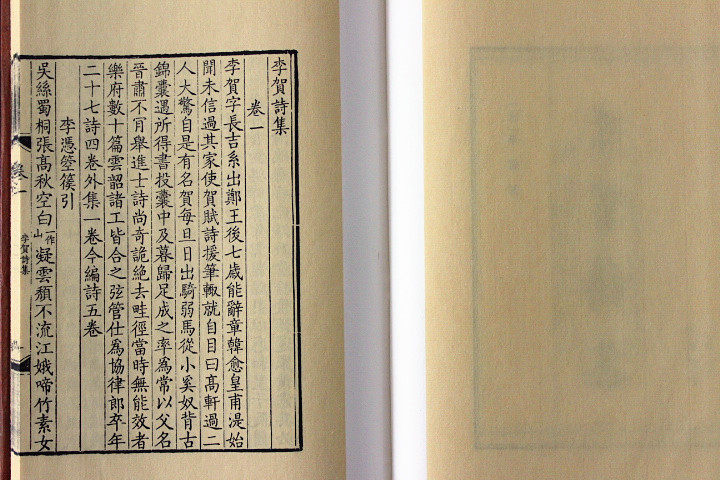 李賀詩集
卷一
李賀字長吉系出鄭王後七歲能辭章韓愈皇甫湜始
聞未信過其家使賀賦詩援筆輒就自目曰高軒過二
人大驚自是有名賀每旦日出騎弱馬從小奚奴背古
錦囊遇所得書投囊中及暮歸足成之率為常以父名
晉肅不肎舉進士詩尚奇詭絶去畦徑當時無能效者
樂府數十篇雲韶諸工皆合之弦管仕為協律郎卒年
二十七詩四卷外集一卷今編詩五卷
李憑箜篌引
吳絲蜀桐張高秋空白一作山凝雲頹不流江娥啼竹素女
李賀詩集